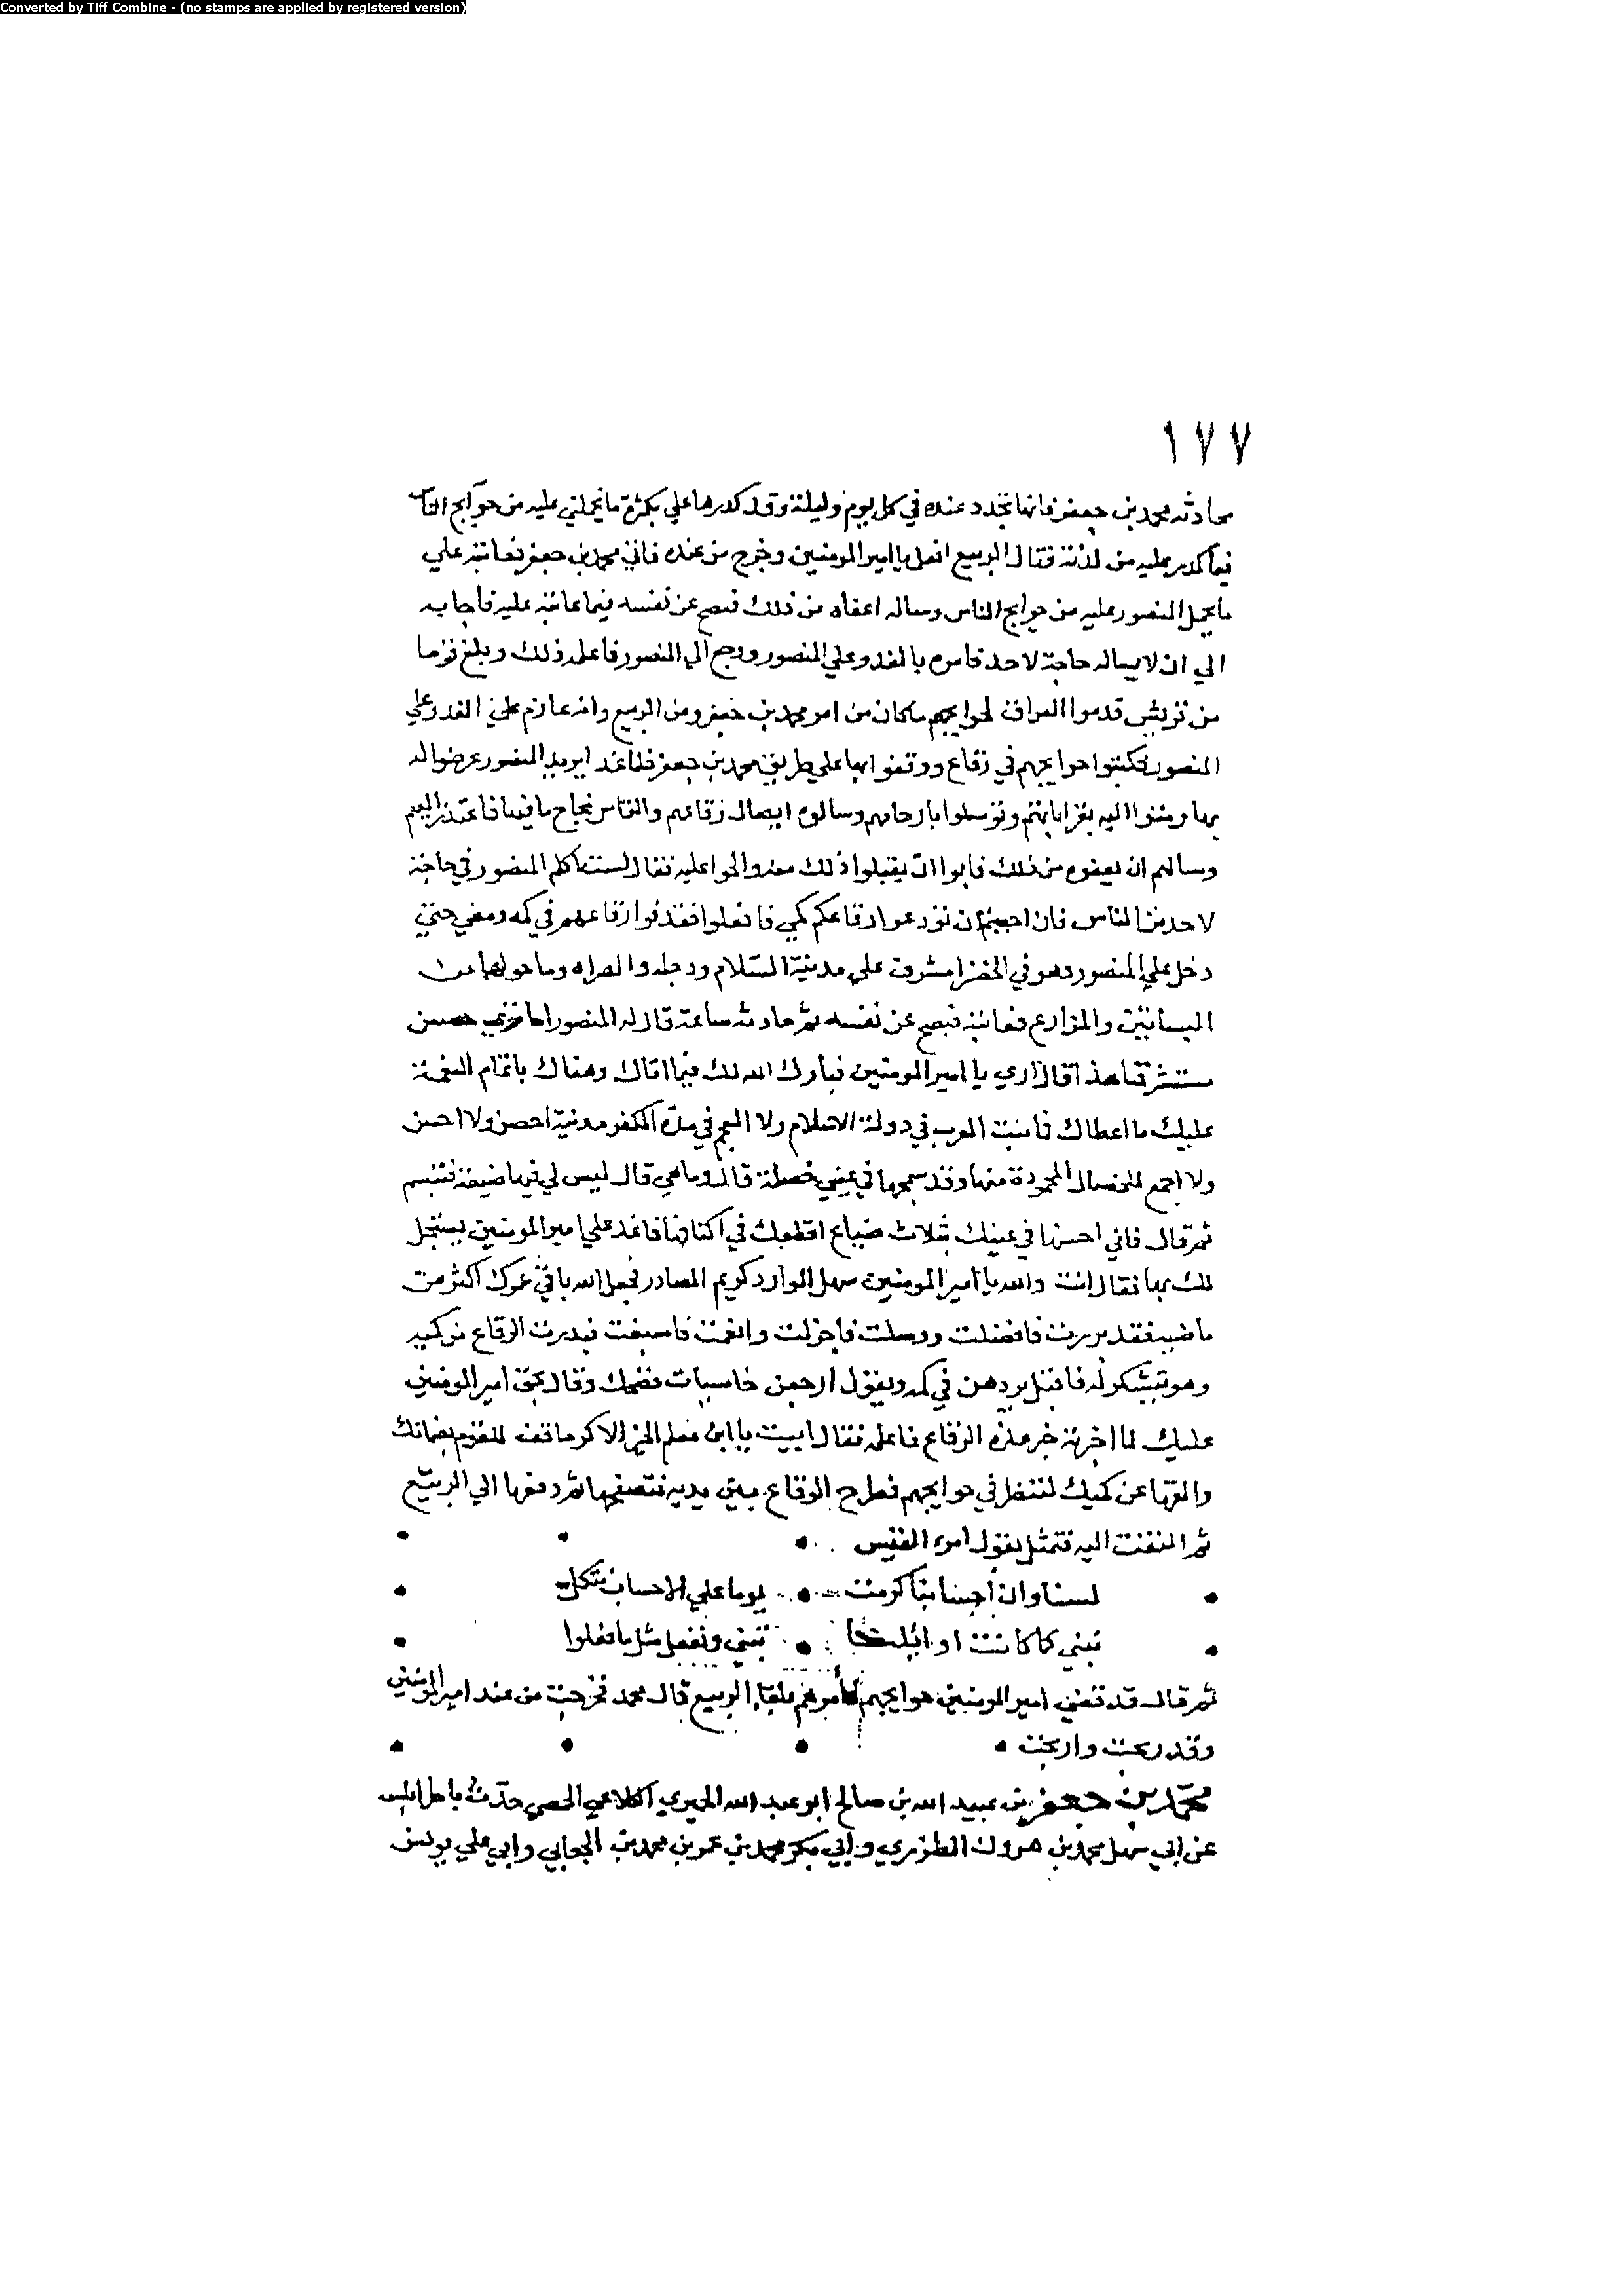 Converted by Tiff Combine - (no stamps are applied by registered version)
١٧٧
محادثه محمد بن جعفر فانها تجدد عنده في كل يوم وليلة وقد كدرها علي بكثرة ما يحملني عليه من حوآيج الناس
فيما كدر عليه من لذته فقال الربيع افعل يا امير المومنين وخرج من عنده فاتي محمد بن جعفر فعاتبه علي
ما يحمل المنصور عليه من حوايج الناس وساله اعفاه من ذلك فنضح عن نفسه فيما عاتبه عليه فاجابه
الي ان لا يساله حاجة لاحد فامره بالغدو علي المنصور ورجع الي المنصور فاعلمه ذلك وبلغ قوما
من قريش قدموا العراق لحوايجهم ما كان من امر محمد بن جعفر ومن الربيع وانه عازم علي الغدو علي
المنصور فكتبوا حوايجهم في رقاع ووقفوا بها علي طريق محمد بن جعفر فلما غدا يريد المنصور عرضوا له
بها ومتوا اليه بقراباتهم وتوسلوا بارحامهم وسالوه ايصال رقاعهم والتماس نجاح ما فيها فاعتذر اليهم
وسالهم ان يعفوه من ذلك فابوا ان يقبلوا ذلك منه والحوا عليه فقال لست اكلم المنصور في حاجة
لاحد من الناس فان احببتم ان تودعوا رقاعكم كمي فافعلوا فقذفوا رقاعهم في كمه ومضي حتي
دخل علي المنصور وهو في الخضرا مشرف علي مدينة السلام ودجله والصراه وما حولهما من
البساتين والمزارع فعاتبه فنضح عن نفسه ثم حادثه ساعة قال له المنصور اما تري حسن
مستشرفنا هذا قال اري يا امير المومنين فبارك الله لك فيما اتاك وهناك باتمام النعمة
عليك ما اعطاك فما بنت العرب في دولة الاسلام ولا العجم في مدة الكفر مدينة احصن ولا احسن
ولا اجمع للخصال المحمودة منها وقد سمجها في عيني خصلة قال وما هي قال ليس لي فيها ضيعة فتبسم
ثم قال فاني احسنها في عينك بثلاث ضياع اقطعك في اكنافها فاغد علي امير المومنين يسجل
لك بها فقال انت والله يا امير المومنين سهل الموارد كريم المصادر فجعل الله باقي عمرك اكثر من
ماضيه فقد بررت فافضلت ووصلت فاجزلت وانعمت فاسبغت فبدرت الرقاع من كميه
وهو يتشكر له فاقبل يردهن في كمه ويقول ارجعن خاسيات فضحك وقال بحق امير المومنين
عليك لما اخبرته خبر هذه الرقاع فاعلمه فقال ابيت يا ابن معلم الخير الا كرما قف للقوم بضمانك
والقها عن كميك لننظر في حوايجهم فطرح الرقاع بين يديه فتصفحها ثم دفعها الي الربيع
ثم التفت اليه فتمثل بقول امرء القيس
لسنا وان احسابنا كرمت يوما علي الاحساب نتكل
نبني كما كانت اوايلنا تبني ونفعل مثل ما فعلوا
ثم قال قد قضي امير المومنين حوايجهم فأمرهم بلقا الربيع قال محمد فخرجت من عند امير المومنين
وقد ربحت واربحت
محمد بن جعفر بن عبيد الله بن صالح ابو عبد الله الحميري الكلاعي الحمصي حدث
عن ابي سهل محمد بن هرون الطوسي وابي بكر محمد بن عمر بن محمد بن الجعابي وابي علي يونس